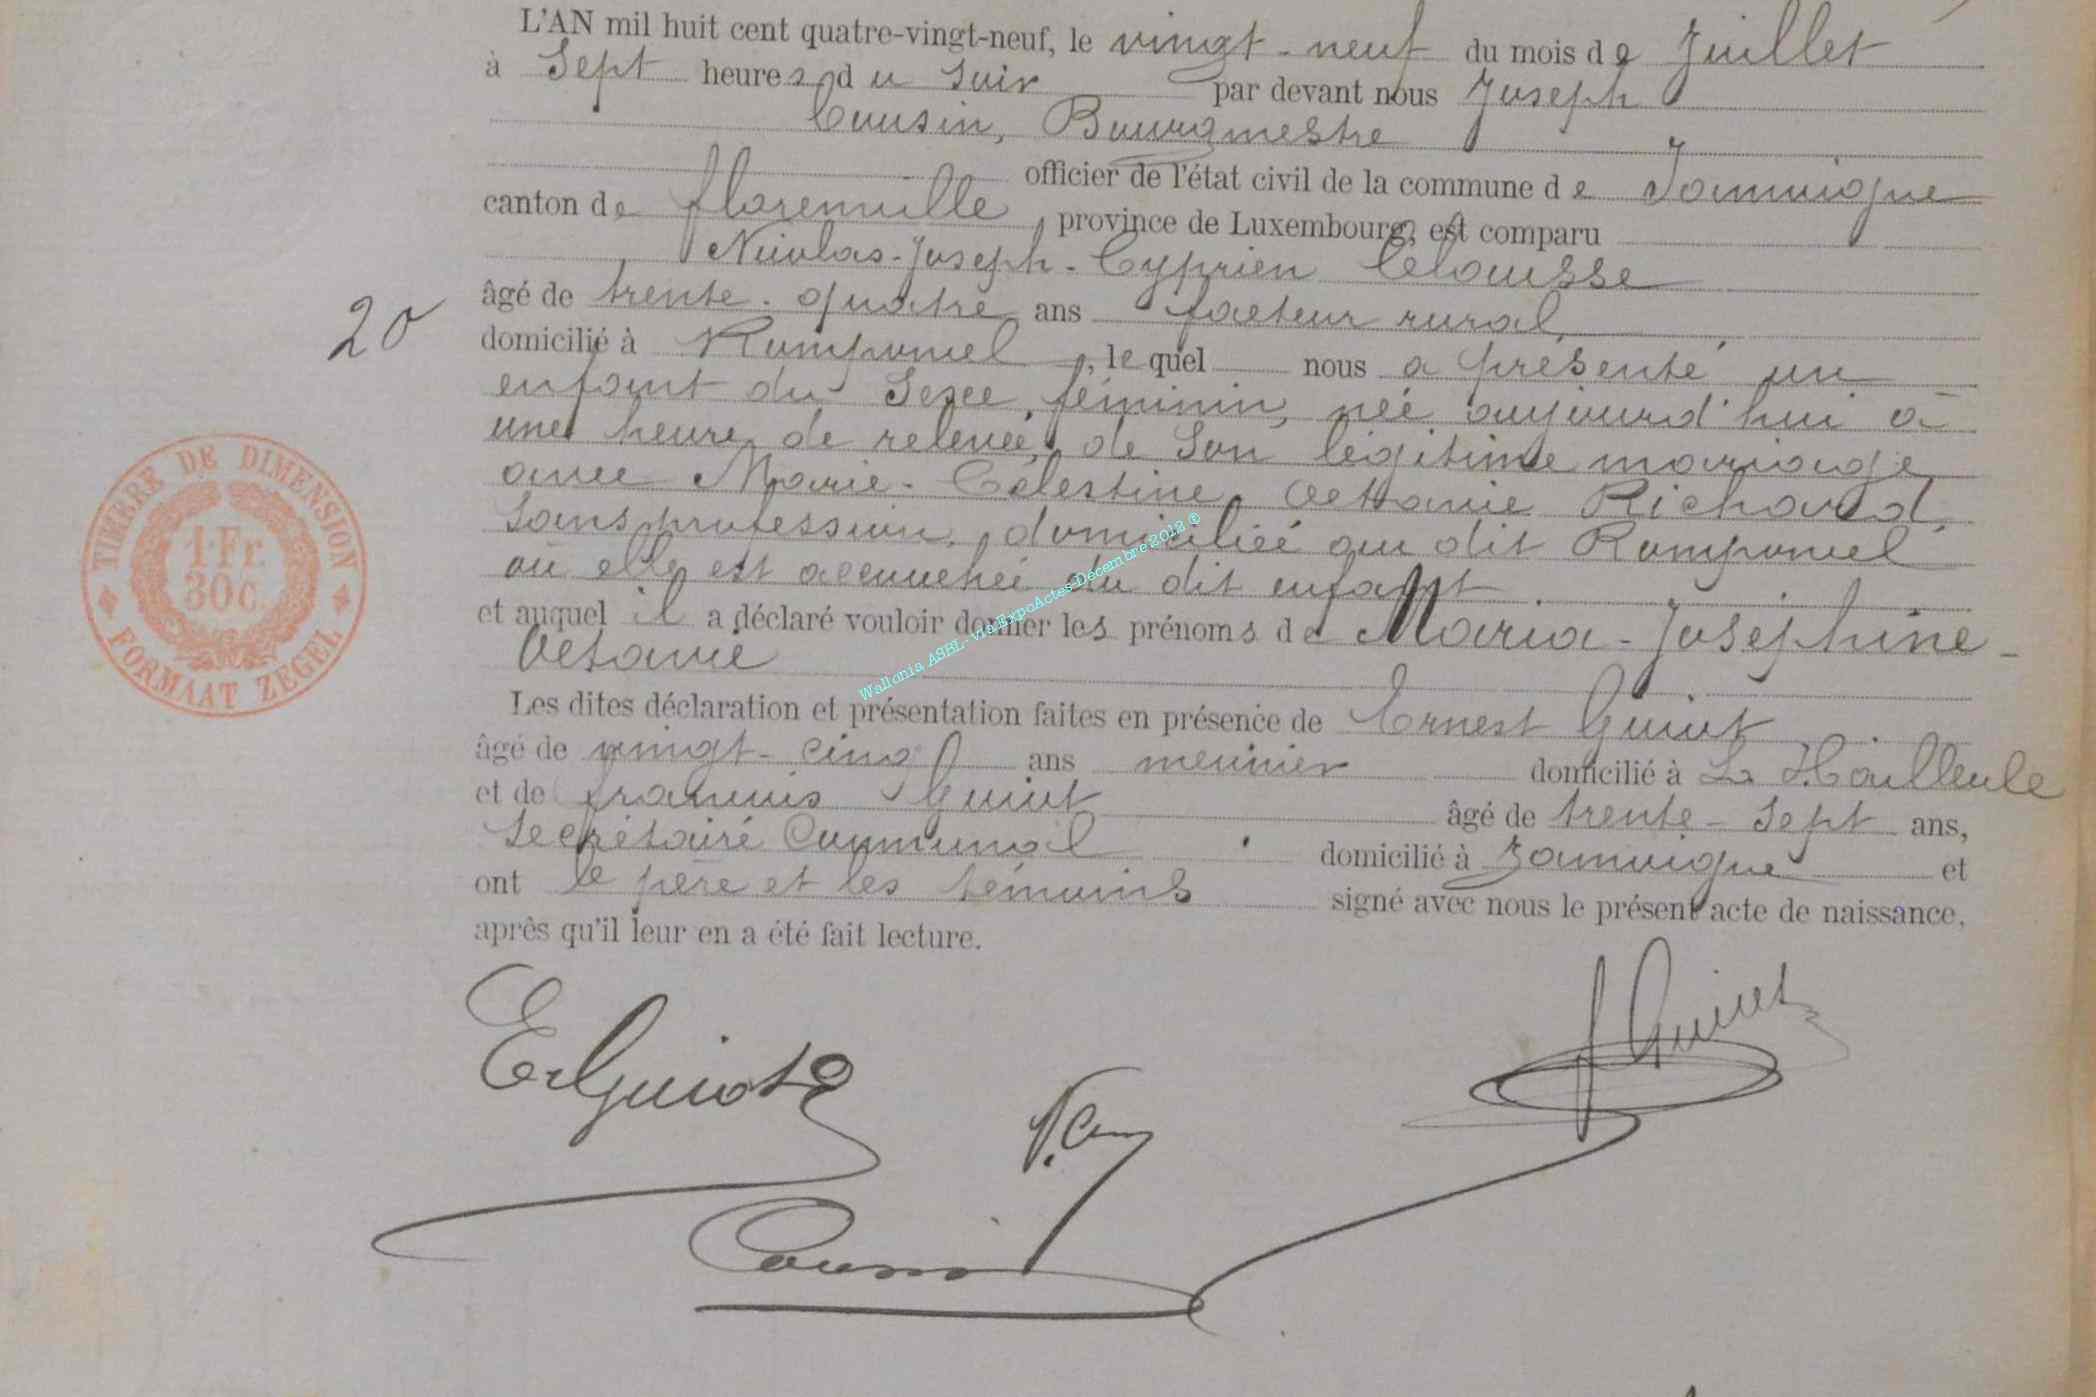 L'AN mil huit cent quatre-vingt-neuf, le vingt-neuf du mois de Juillet
à Sept heures du Soir par devant nous Joseph
Cousin, Bourgmestre
officier de l'état civil de la commune de Jamoigne
canton de florenville, province de Luxembourg, est comparu
Nicolas-Joseph-Cyprien Clousse
âgé de trente-quatre ans facteur rural
domicilié à Romponcel, lequel nous a présenté un
20
enfant du Sexe féminin, née aujourd'hui à
une heure de relevée, de Son légitime mariage
avec Marie-Célestine Octavie Richard,
Sans profession, domiciliée au dit Romponcel
où elle est accouchée du dit enfant
et auquel il a déclaré vouloir donner les prénoms de Maria-Joséphine-
Octavie
Les dites déclaration et présentation faites en présence de Ernest Guiot
âgé de vingt-cinq ans meunier domicilié à La Hailleule
et de francois Guiot âgé de trente-Sept ans,
Secrétaire Communal domicilié à Jamoigne et
ont le père et les témoins signé avec nous le présent acte de naissance,
après qu'il leur en a été fait lecture.
TIMBRE DE DIMENSION
1 Fr.
30 c.
FORMAAT ZEGEL
Wallonia ASBL - via ExpoActes-Décembre 2012 ®
E Guiot
f Guiot
Cousin